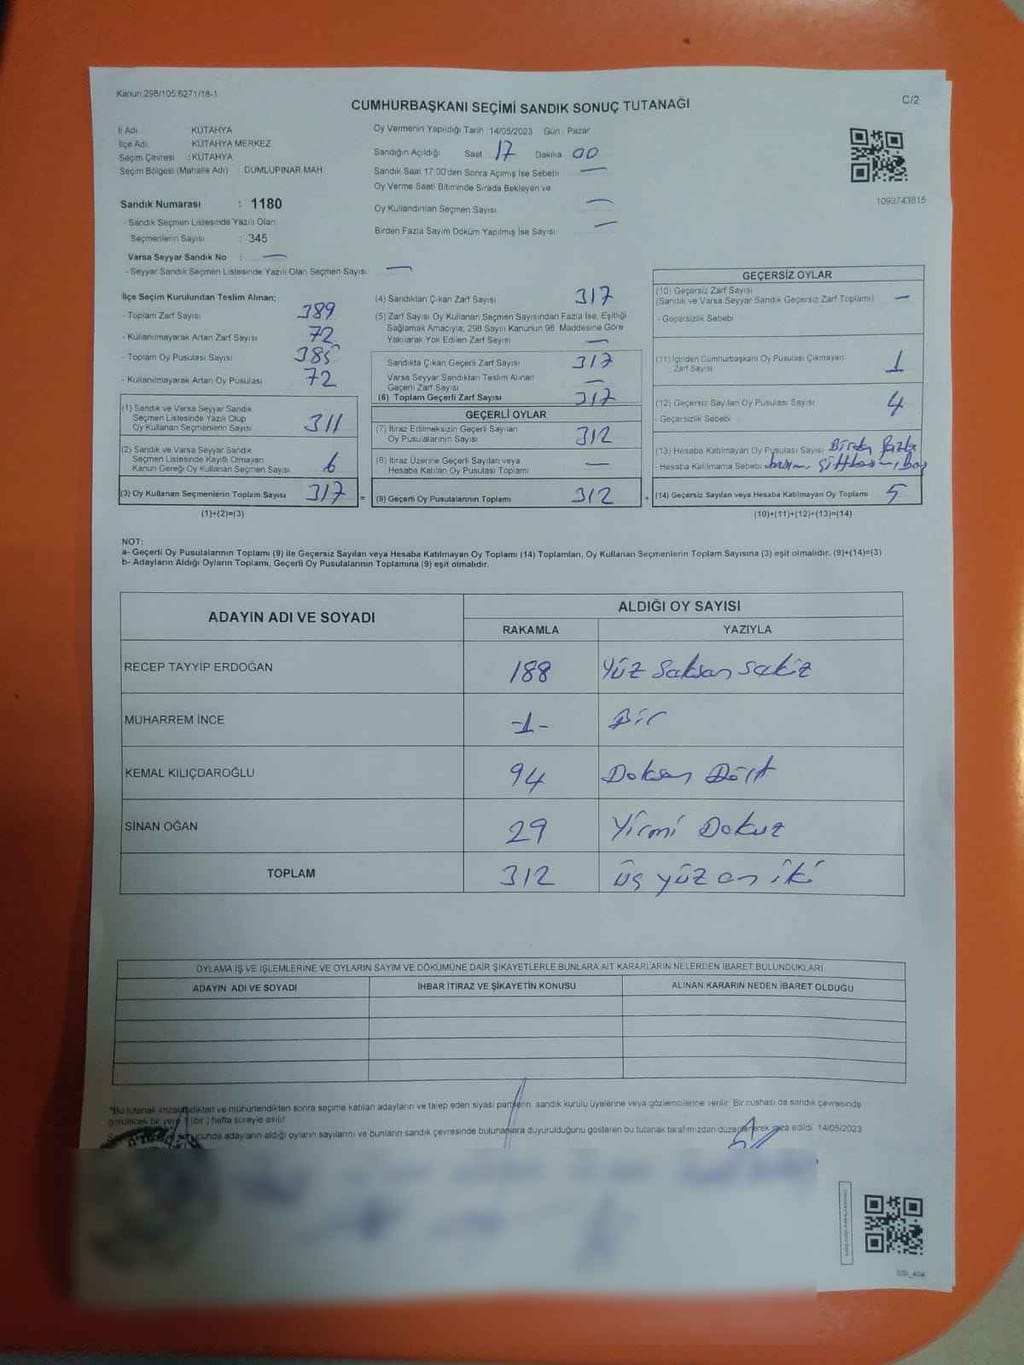 Kanun:298/105,6271/18-1
C/2
CUMHURBAŞKANI SEÇİMİ SANDIK SONUÇ TUTANAĞI
İl Adı : KÜTAHYA
İlçe Adı : KÜTAHYA MERKEZ
Seçim Çevresi : KÜTAHYA
Seçim Bölgesi (Mahalle Adı) : DUMLUPINAR MAH
Sandık Numarası : 1180
- Sandık Seçmen Listesinde Yazılı Olan
Seçmenlerin Sayısı : 345
Varsa Seyyar Sandık No : —
- Seyyar Sandık Seçmen Listesinde Yazılı Olan Seçmen Sayısı : —
Oy Vermenin Yapıldığı Tarih :14/05/2023 Gün : Pazar
Sandığın Açıldığı Saat 17 Dakika 00
Sandık Saat 17.00'den Sonra Açılmış İse Sebebi —
Oy Verme Saati Bitiminde Sırada Bekleyen ve
Oy Kullandırılan Seçmen Sayısı —
Birden Fazla Sayım Döküm Yapılmış İse Sayısı —
1093743815
İlçe Seçim Kurulundan Teslim Alınan;
- Toplam Zarf Sayısı 389
- Kullanılmayarak Artan Zarf Sayısı 72
- Toplam Oy Pusulası Sayısı 385
- Kullanılmayarak Artan Oy Pusulası 72
(1) Sandık ve Varsa Seyyar Sandık
Seçmen Listesinde Yazılı Olup
Oy Kullanan Seçmenlerin Sayısı 311
(2) Sandık ve Varsa Seyyar Sandık
Seçmen Listesinde Kayıtlı Olmayan
Kanun Gereği Oy Kullanan Seçmen Sayısı 6
(3) Oy Kullanan Seçmenlerin Toplam Sayısı 317 =
(1)+(2)=(3)
(4) Sandıktan Çıkan Zarf Sayısı 317
(5) Zarf Sayısı Oy Kullanan Seçmen Sayısından Fazla İse, Eşitliği
Sağlamak Amacıyla, 298 Sayılı Kanunun 98. Maddesine Göre
Yakılarak Yok Edilen Zarf Sayısı —
Sandıkta Çıkan Geçerli Zarf Sayısı 317
Varsa Seyyar Sandıktan Teslim Alınan
Geçerli Zarf Sayısı —
(6) Toplam Geçerli Zarf Sayısı 317
GEÇERLİ OYLAR
(7) İtiraz Edilmeksizin Geçerli Sayılan
Oy Pusulalarının Sayısı 312
(8) İtiraz Üzerine Geçerli Sayılan veya
Hesaba Katılan Oy Pusulası Toplamı —
(9) Geçerli Oy Pusulalarının Toplamı 312 +
GEÇERSİZ OYLAR
(10) Geçersiz Zarf Sayısı
(Sandık ve Varsa Seyyar Sandık Geçersiz Zarf Toplamı) —
- Geçersizlik Sebebi
(11) İçinden Cumhurbaşkanı Oy Pusulası Çıkmayan
Zarf Sayısı 1
(12) Geçersiz Sayılan Oy Pusulası Sayısı 4
- Geçersizlik Sebebi
(13) Hesaba Katılmayan Oy Pusulası Sayısı Birden fazla
- Hesaba Katılmama Sebebi
(14) Geçersiz Sayılan veya Hesaba Katılmayan Oy Toplamı 5
(10)+(11)+(12)+(13)=(14)
NOT:
a- Geçerli Oy Pusulalarının Toplamı (9) ile Geçersiz Sayılan veya Hesaba Katılmayan Oy Toplamı (14) Toplamları, Oy Kullanan Seçmenlerin Toplam Sayısına (3) eşit olmalıdır. (9)+(14)=(3)
b- Adayların Aldığı Oyların Toplamı, Geçerli Oy Pusulalarının Toplamına (9) eşit olmalıdır.
ADAYIN ADI VE SOYADI ALDIĞI OY SAYISI
RAKAMLA YAZIYLA
RECEP TAYYİP ERDOĞAN 188 Yüz Seksen sekiz
MUHARREM İNCE -1- Bir
KEMAL KILIÇDAROĞLU 94 Doksan Dört
SİNAN OĞAN 29 Yirmi Dokuz
TOPLAM 312 üç yüz on iki
OYLAMA İŞ VE İŞLEMLERİNE VE OYLARIN SAYIM VE DÖKÜMÜNE DAİR ŞİKAYETLERLE BUNLARA AİT KARARLARIN NELERDEN İBARET BULUNDUKLARI
ADAYIN ADI VE SOYADI İHBAR İTİRAZ VE ŞİKAYETİN KONUSU ALINAN KARARIN NEDEN İBARET OLDUĞU
*Bu tutanak imzalandıktan ve mühürlendikten sonra seçime katılan adayların ve talep eden siyasi partilerin sandık kurulu üyelerine veya gözlemcilerine verilir. Bir nüshası da sandık çevresinde
görülecek bir yere 1 (bir) hafta süreyle asılır.
sonucunda adayların aldığı oyların sayılarını ve bunların sandık çevresinde bulunanlara duyurulduğunu gösteren bu tutanak tarafımızdan düzenlenerek imza edildi. 14/05/2023